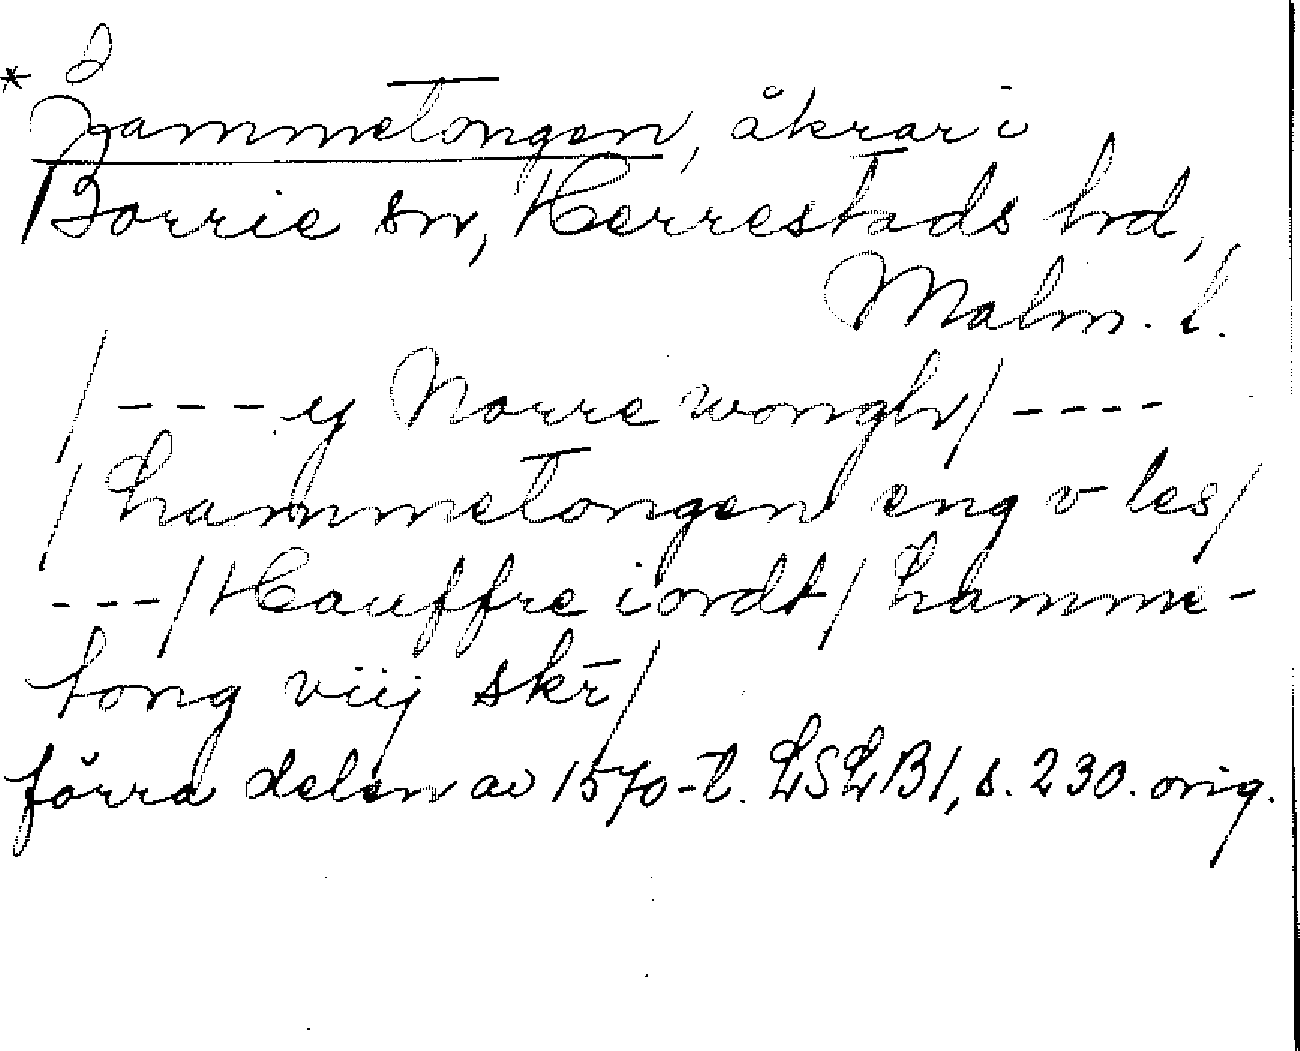 * Lammetongen, åkrar i
Borrie sn, Herrestads hd,
Malm. l.
/ - - - y Norre wongh / - - - -
/ Lammetongen eng v les /
- - - / Hauffre iordt / Lamme-
tong viij skr̄ /
förra delen av 1570-t. LSLB 1, s. 230. orig.